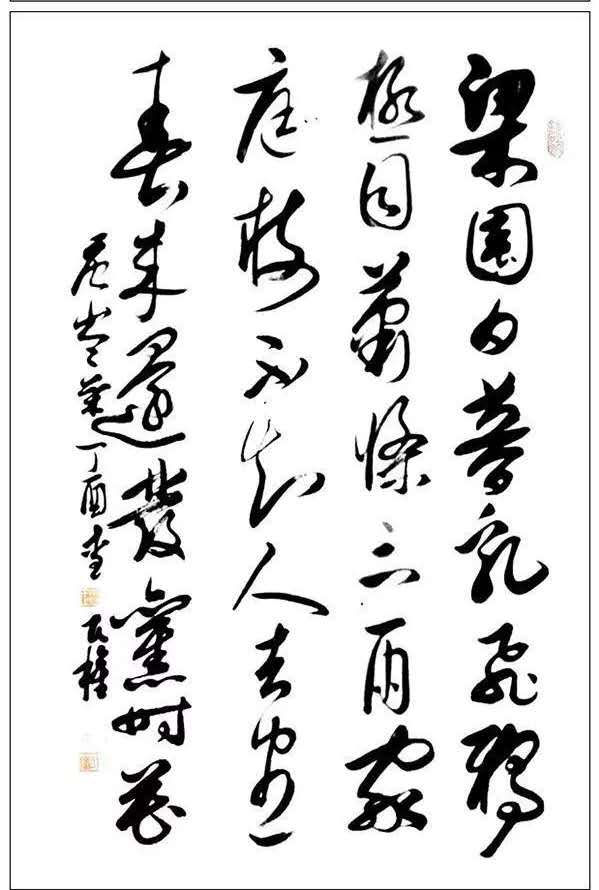 梁園日暮亂飛鴉
極目蕭條三兩家
庭樹不知人去盡
春來還發舊時花
丁酉